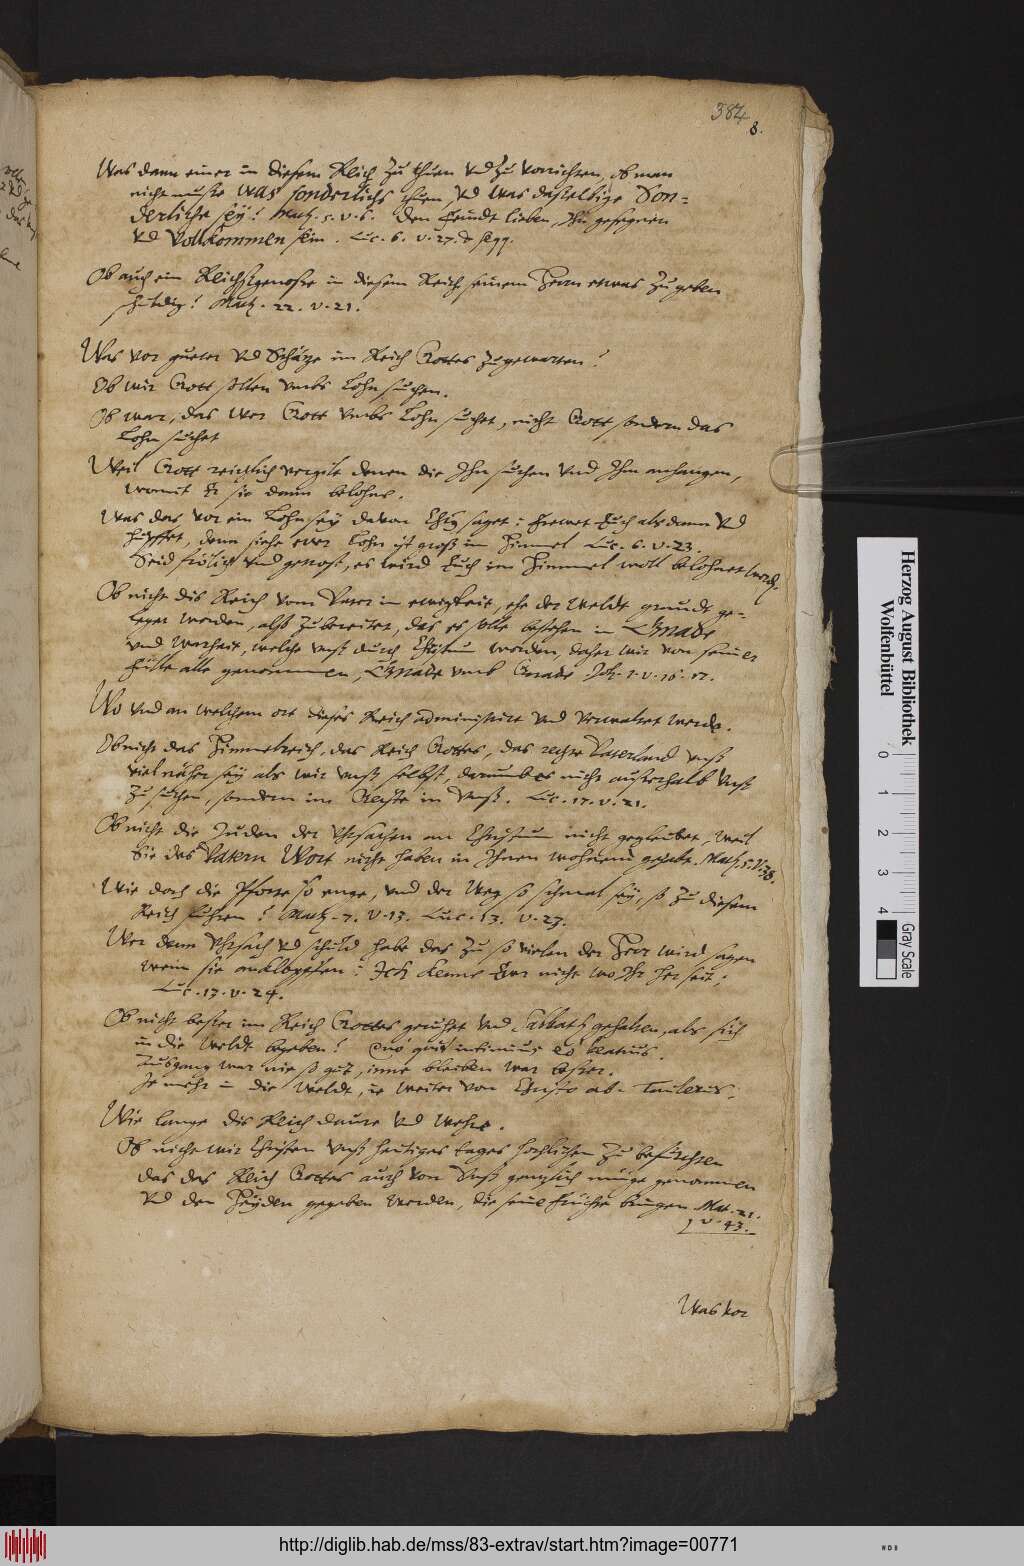 384
8.
Was dann einer in diesem Reich zu thuen vnd zu verrichten, ob man
nicht muste was sonderlichs thuen vnd was dasselbige Son-
derliche sey? Math. 5. v. 6. den feindt lieben, Ihn gesegnen
vnd vollkommen sein. Luc. 6. v. 27. & seqq.
Ob auch ein Reichsgenosse in diesem Reich seinem Herrn etwas zu geben
schuldig? Math. 22. v. 21.
Was vor gueter vnd Schätze im Reich Gottes zugewarten?
Ob wir Gott sollen vmbs Lohn suchen.
Ob war, das wer Gott vmbs Lohn suchet, nicht Gott sondern das
Lohn suchet
Weil Gott reichlich vergilt denen die Ihn suchen vnd Ihm anhangen,
womit Er sie dann belohne.
Was das vor ein Lohn sey davon Chrs saget: frewet Euch alsdann vnd
hupffet, denn siehe ewer Lohn ist groß im Himmel Luc. 6. v. 23.
Seid frölich vnd getrost, es wird Euch im Himmel woll belohnet werdn.
Ob nicht dis Reich vom Vater in ewigkeit, ehe der Weldt grundt ge-
leget worden, also zubereitet, das es solle bestehen in Gnade
vnd Warheit, welche vnß durch Christum worden, daher wir von seiner
fülle alle genommen, Gnade vmb Gnade Joh. 1. v. 16. 17.
Wo vnd an welchem ort dieses Reich administrirt vnd verwaltet werde.
Ob nicht das Himmelreich, das Reich Gottes, das rechte Vaterland vnß
viel näher sey als wir vnß selbst, darumb es nicht ausserhalb vnß
zu suchen, sondern im Geiste in vnß. Luc. 17. v. 21.
Ob nicht die Juden der vhrsachen an Christum nicht geglaubet, weil
Sie des Vatern Wort nicht haben in Ihnen wohnend gehabt. Math. 5. v. 38.
Wie doch die Pforte so enge, vnd der Weg so schmal sey, so zu diesem
Reich führen? Math. 7. v. 13. Luc. 13. v. 23.
Wer denn vhrsach vnd schuld habe das zu so vielen der Herr wird sagen
wenn sie anklopffen: Ich kenne Ewr nicht wo Ihr her seit;
Luc. 17. v. 24.
Ob nicht besser im Reich Gottes geruhet vnd Sabbath gehalten, als sich
in die Weldt begeben? Quo quis intimius eo beatius.
Ausgang war nie so gut, inne bleiben war besser.
Je mehr in die Weldt, je weiter von Christo ab. Taulerus.
Wie lange dis Reich daure vnd wehre.
Ob nicht wir Christen vnß heutiges tages hochlichen zu befürchten
das das Reich Gottes auch von vnß gentzlich müge genommen
vnd den Heyden gegeben werden, die seine früchte bringen Mat. 21.
v. 43.
Was vor
Herzog August Bibliothek
Wolfenbüttel
0 1 2 3 4
Gray Scale
http://diglib.hab.de/mss/83-extrav/start.htm?image=00771